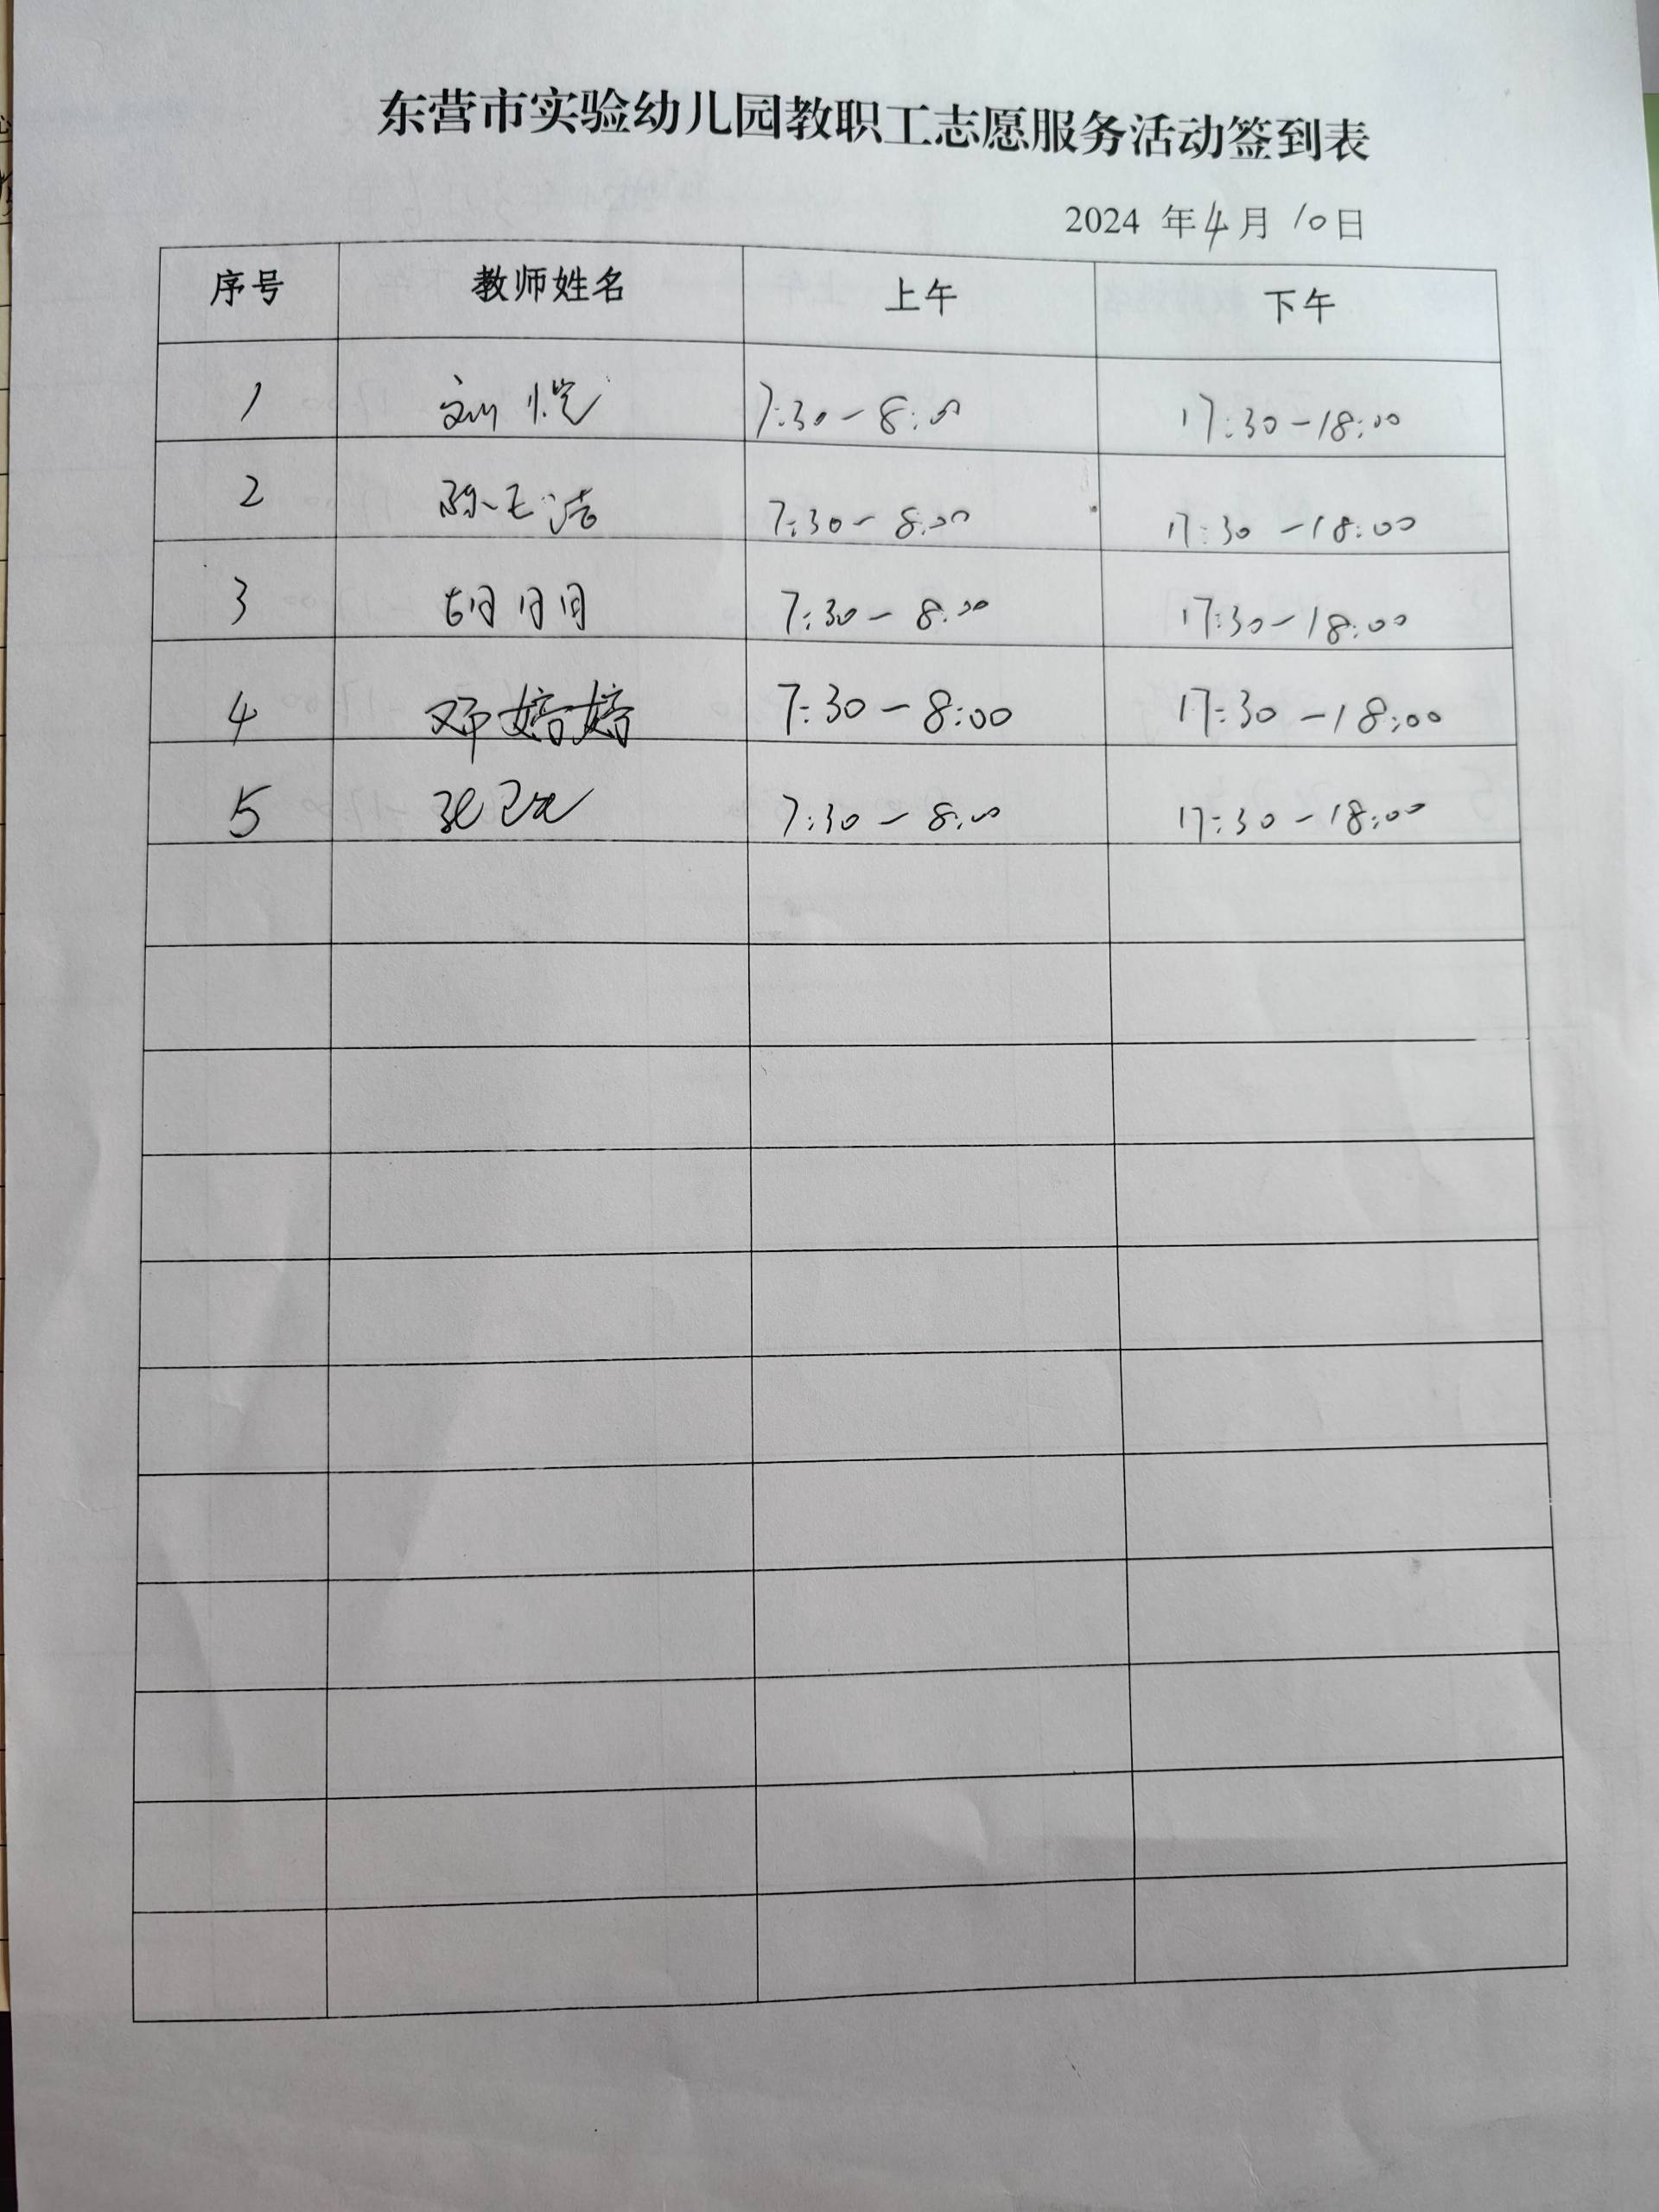 东营市实验幼儿园教职工志愿服务活动签到表
2024 年 4 月 10 日
序号 教师姓名 上午 下午
1 刘恺 7:30-8:00 17:30-18:00
2 7:30-8:00 17:30-18:00
3 胡月月 7:30-8:00 17:30-18:00
4 邓婷婷 7:30-8:00 17:30-18:00
5 7:30-8:00 17:30-18:00